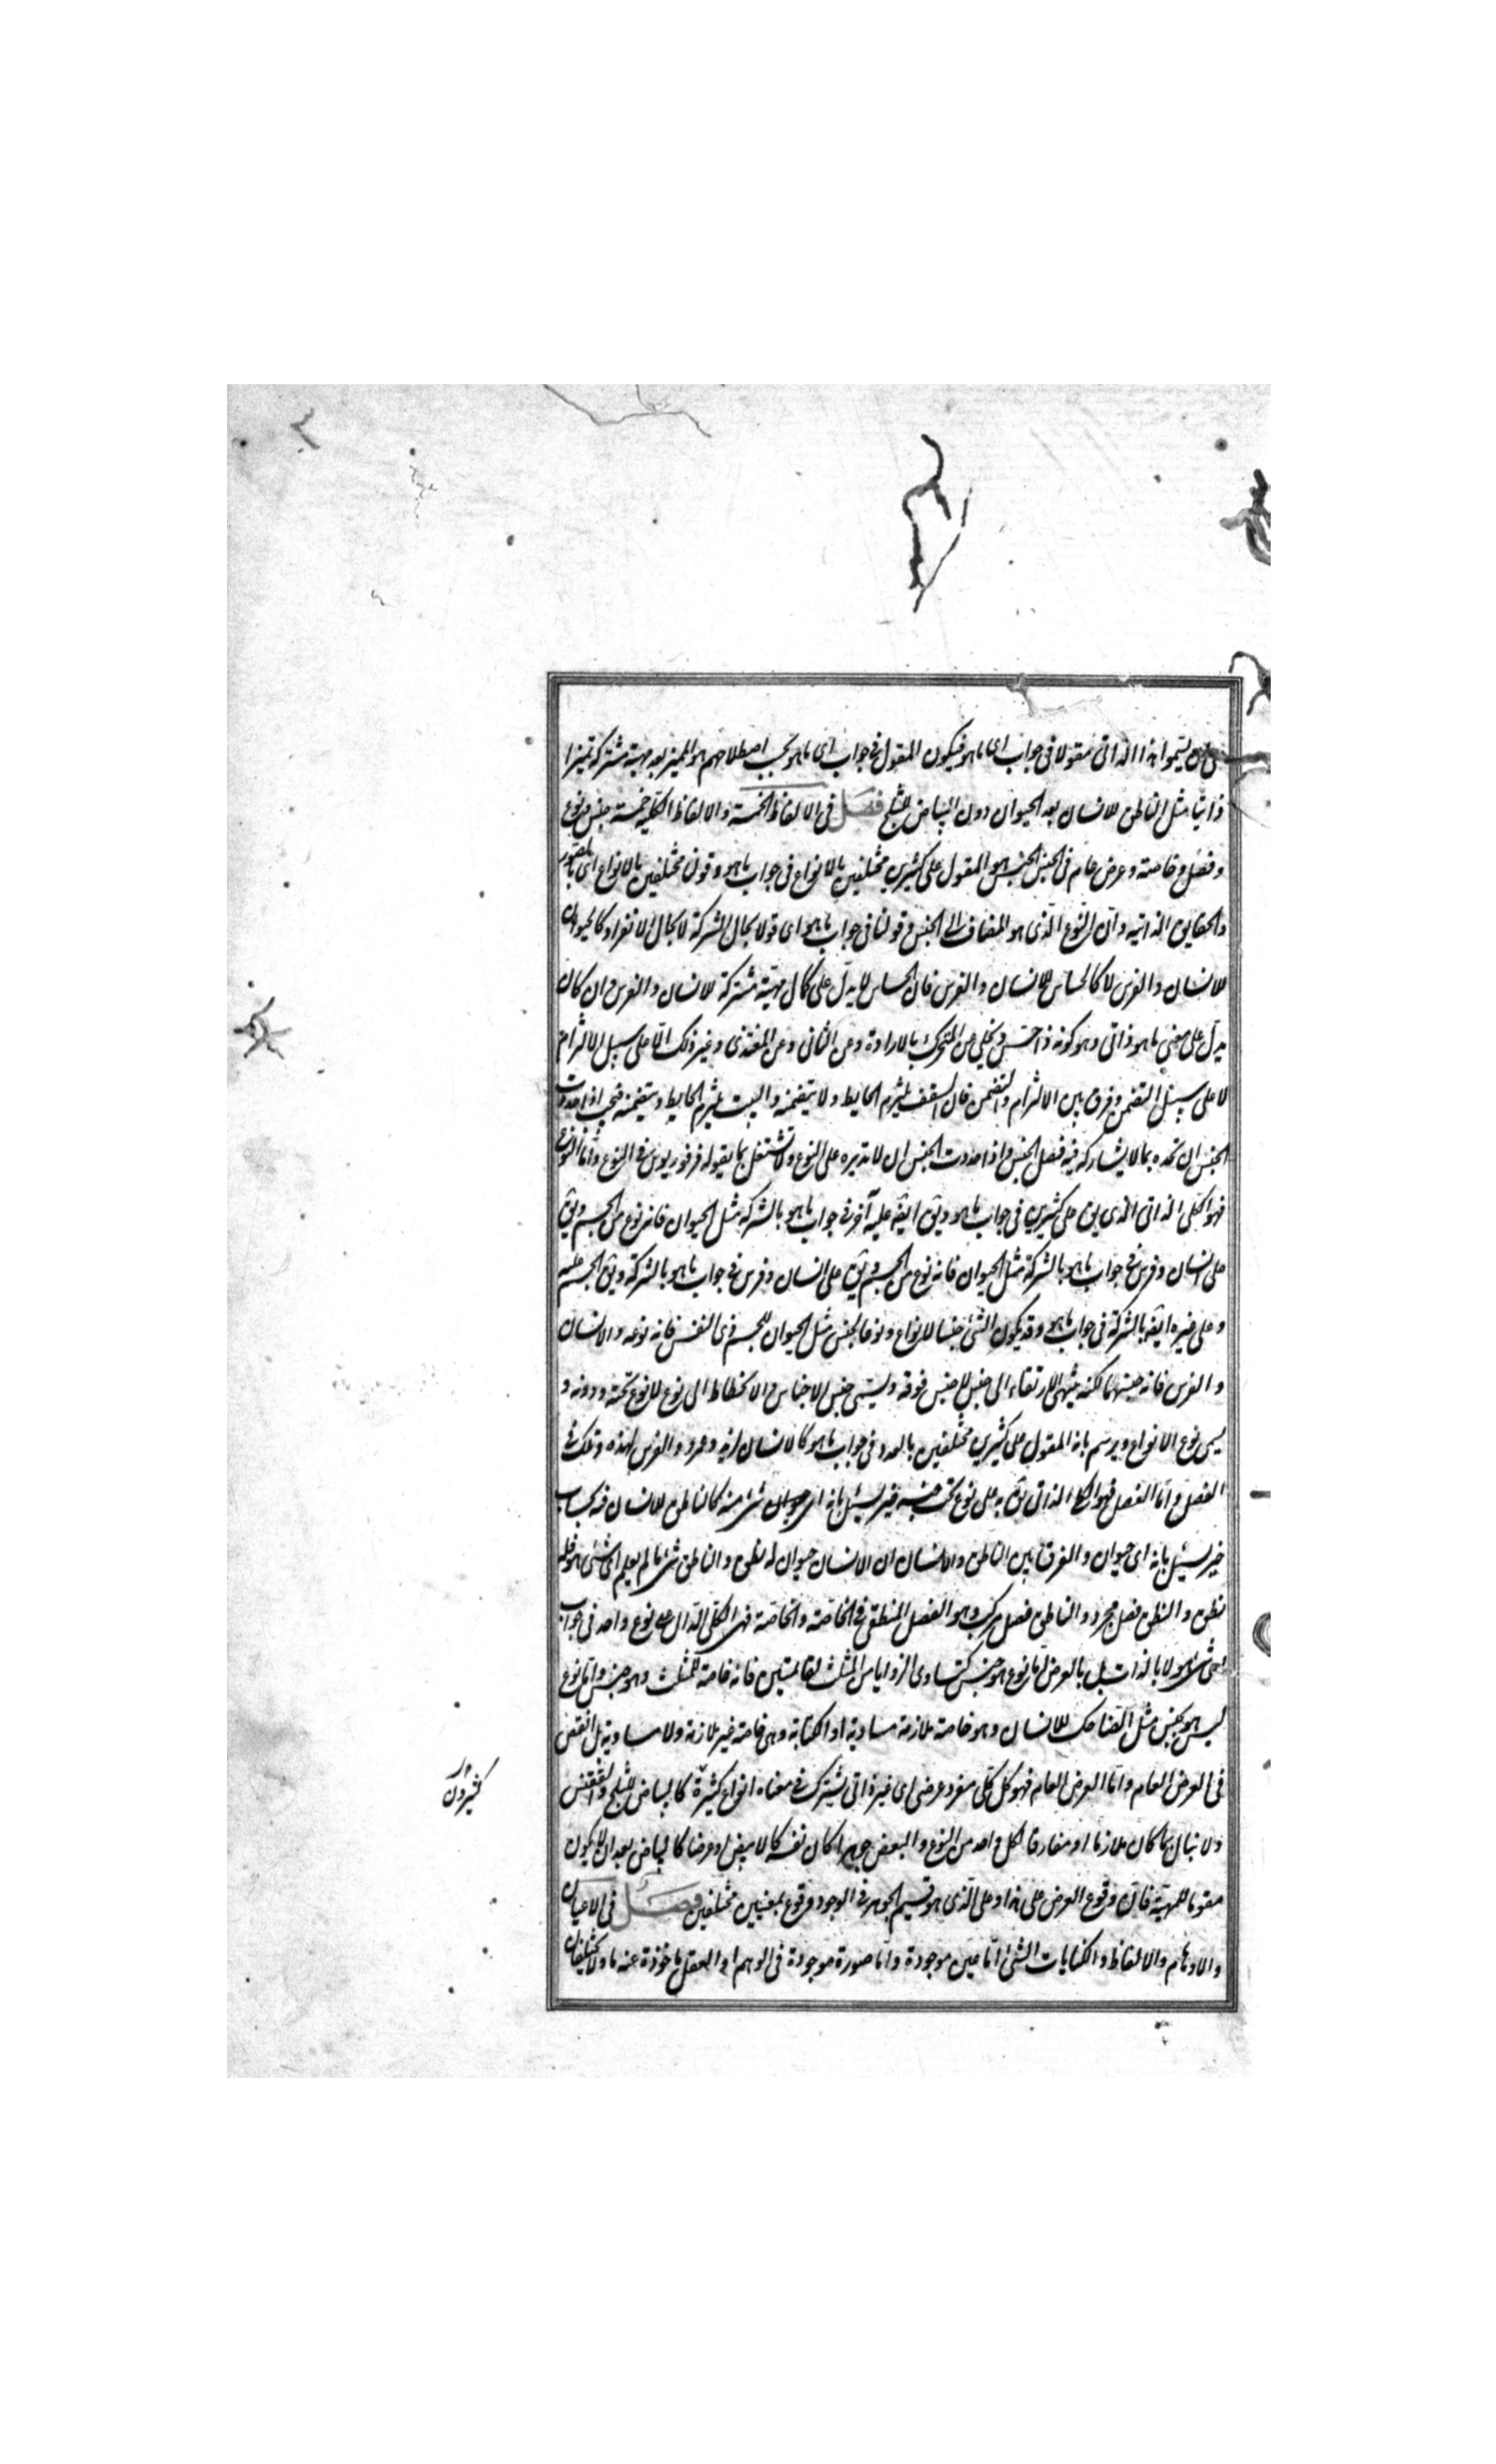 على ان يسموا هذا الذاتى مقولا فى جواب اى ما هو فيكون المقول فى جواب اى ما هو بحسب اصطلاحهم هو المميز بعد مهية مشتركة تميزا
ذاتيا مثل الناطق للانسان بعد الحيوان دون البياض للثلج فصل فى الالفاظ الخمسة والالفاظ الكلية خمسة جنس ونوع
وفصل وخاصة وعرض عام فى الجنس الجنس هو المقول على كثيرين مختلفين بالانواع فى جواب ما هو وقولى مختلفين بالانواع اى بالصور
والحقايق الذاتية وان النوع الذى هو المضاف الى الجنس وقولنا فى جواب ما هو اى قولا بحال الشركة لا بحال الانفراد كالحيوان
للانسان والفرس لا كالحساس للانسان والفرس فان الحساس لا يدل على كمال مهية مشتركة للانسان والفرس وان كان
يدل على معنى ما هو ذاتى وهو كونه ذا حس ويخلى عن المتحرك بالارادة وعن النامى وعن المغتذى وغير ذلك الا على سبيل الالتزام
لا على سبيل التضمن وفرق بين الالتزام والتضمن فان السقف يلتزم الحايط ولا يتضمنه والبيت يلتزم الحايط ويتضمنه فيجب اذا حددت
الجنس ان تحده بما لا يشاركه فيه فصل الجنس واذا حددت الجنس ان لا تديره على النوع ولا تشتغل بما يقوله فرفوريوس فى النوع واما النوع
فهو الكلى الذاتى الذى يق على كثيرين فى جواب ما هو ويق ايضه عليه آخر فى جواب ما هو بالشركة مثل الحيوان فانه نوع من الجسم ويق
على انسان وفرس فى جواب ما هو بالشركة مثل الحيوان فانه نوع من الجسم ويق على انسان وفرس فى جواب ما هو بالشركة ويق الجسم عليه
وعلى غيره ايضه بالشركة فى جواب ما هو وقد يكون الشئ جنسا للانواع ونوعا لجنس مثل الحيوان للجسم ذى النفس فانه نوعه والانسان
والفرس فانه جنسهما لكنه ينتهى الارتقاء الى جنس لا جنس فوقه ويسمى جنس الاجناس والانحطاط الى نوع لا نوع تحته ودونه و
يسمى نوع الانواع ويرسم بانه المقول على كثيرين مختلفين بالعدد فى جواب ما هو كالانسان لزيد وعمرو والفرس لهذه وتلك فى
الفصل واما الفصل فهو الكلى الذاتى الذى يق به على نوع تحت جنسه حين يسئل بانه اى حيوان شئ منه كالناطق للانسان فبه يجاب
حين يسئل بانه اى حيوان والفرق بين الناطق والانسان ان الانسان حيوان له نطق والناطق شئ ما لم يعلم اى شئ هو فله
نطق والنطق فصل مجرد والناطق فصل مركب وهو الفصل المنطقى فى الخاصة والخاصة فهى الكلى الدال على نوع واحد فى جواب
اى شئ هو لا بالذات بل بالعرض اما نوع هو جنس كتساوى الزوايا من المثلث لقائمتين فانه خاصة للمثلث وهو جنس واما نوع
ليس هو بجنس مثل الضاحك للانسان وهو خاصة ملازمة مساوية او الكتابة وهى خاصة غير ملازمة ولا مساوية بل انقص
فى العرض العام واما العرض العام فهو كل كلى مفرد عرضى اى غير ذاتى يشترك فى معناه انواع كثيرة كالبياض للثلج والققنس
كثيرون
ولا نبال بما كان ملازما او مفارقا لكل واحد من النوع والبعض جوهرا كان نفسه كالابيض او عرضا كالبياض بعد ان لا يكون
مقوما للمهية فان وقوع العرض على هذا وعلى الذى هو قسيم الجوهر فى الوجود وقوع بمعنيين مختلفين فصل فى الاعيان
والاوهام والالفاظ والكتابات الشئ اما عين موجودة واما صورة موجودة فى الوهم او العقل ماخوذة عنه ما ولا يختلفان